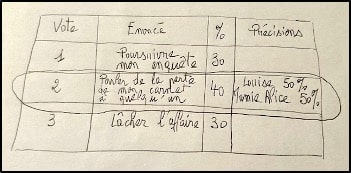 Vote Énoncé % Précisions
1 Poursuivre mon enquête 30
2 Parler de la perte de mon carnet à quelqu'un 40 Louise 50% Marie Alice 50%
3 Lâcher l'affaire 30